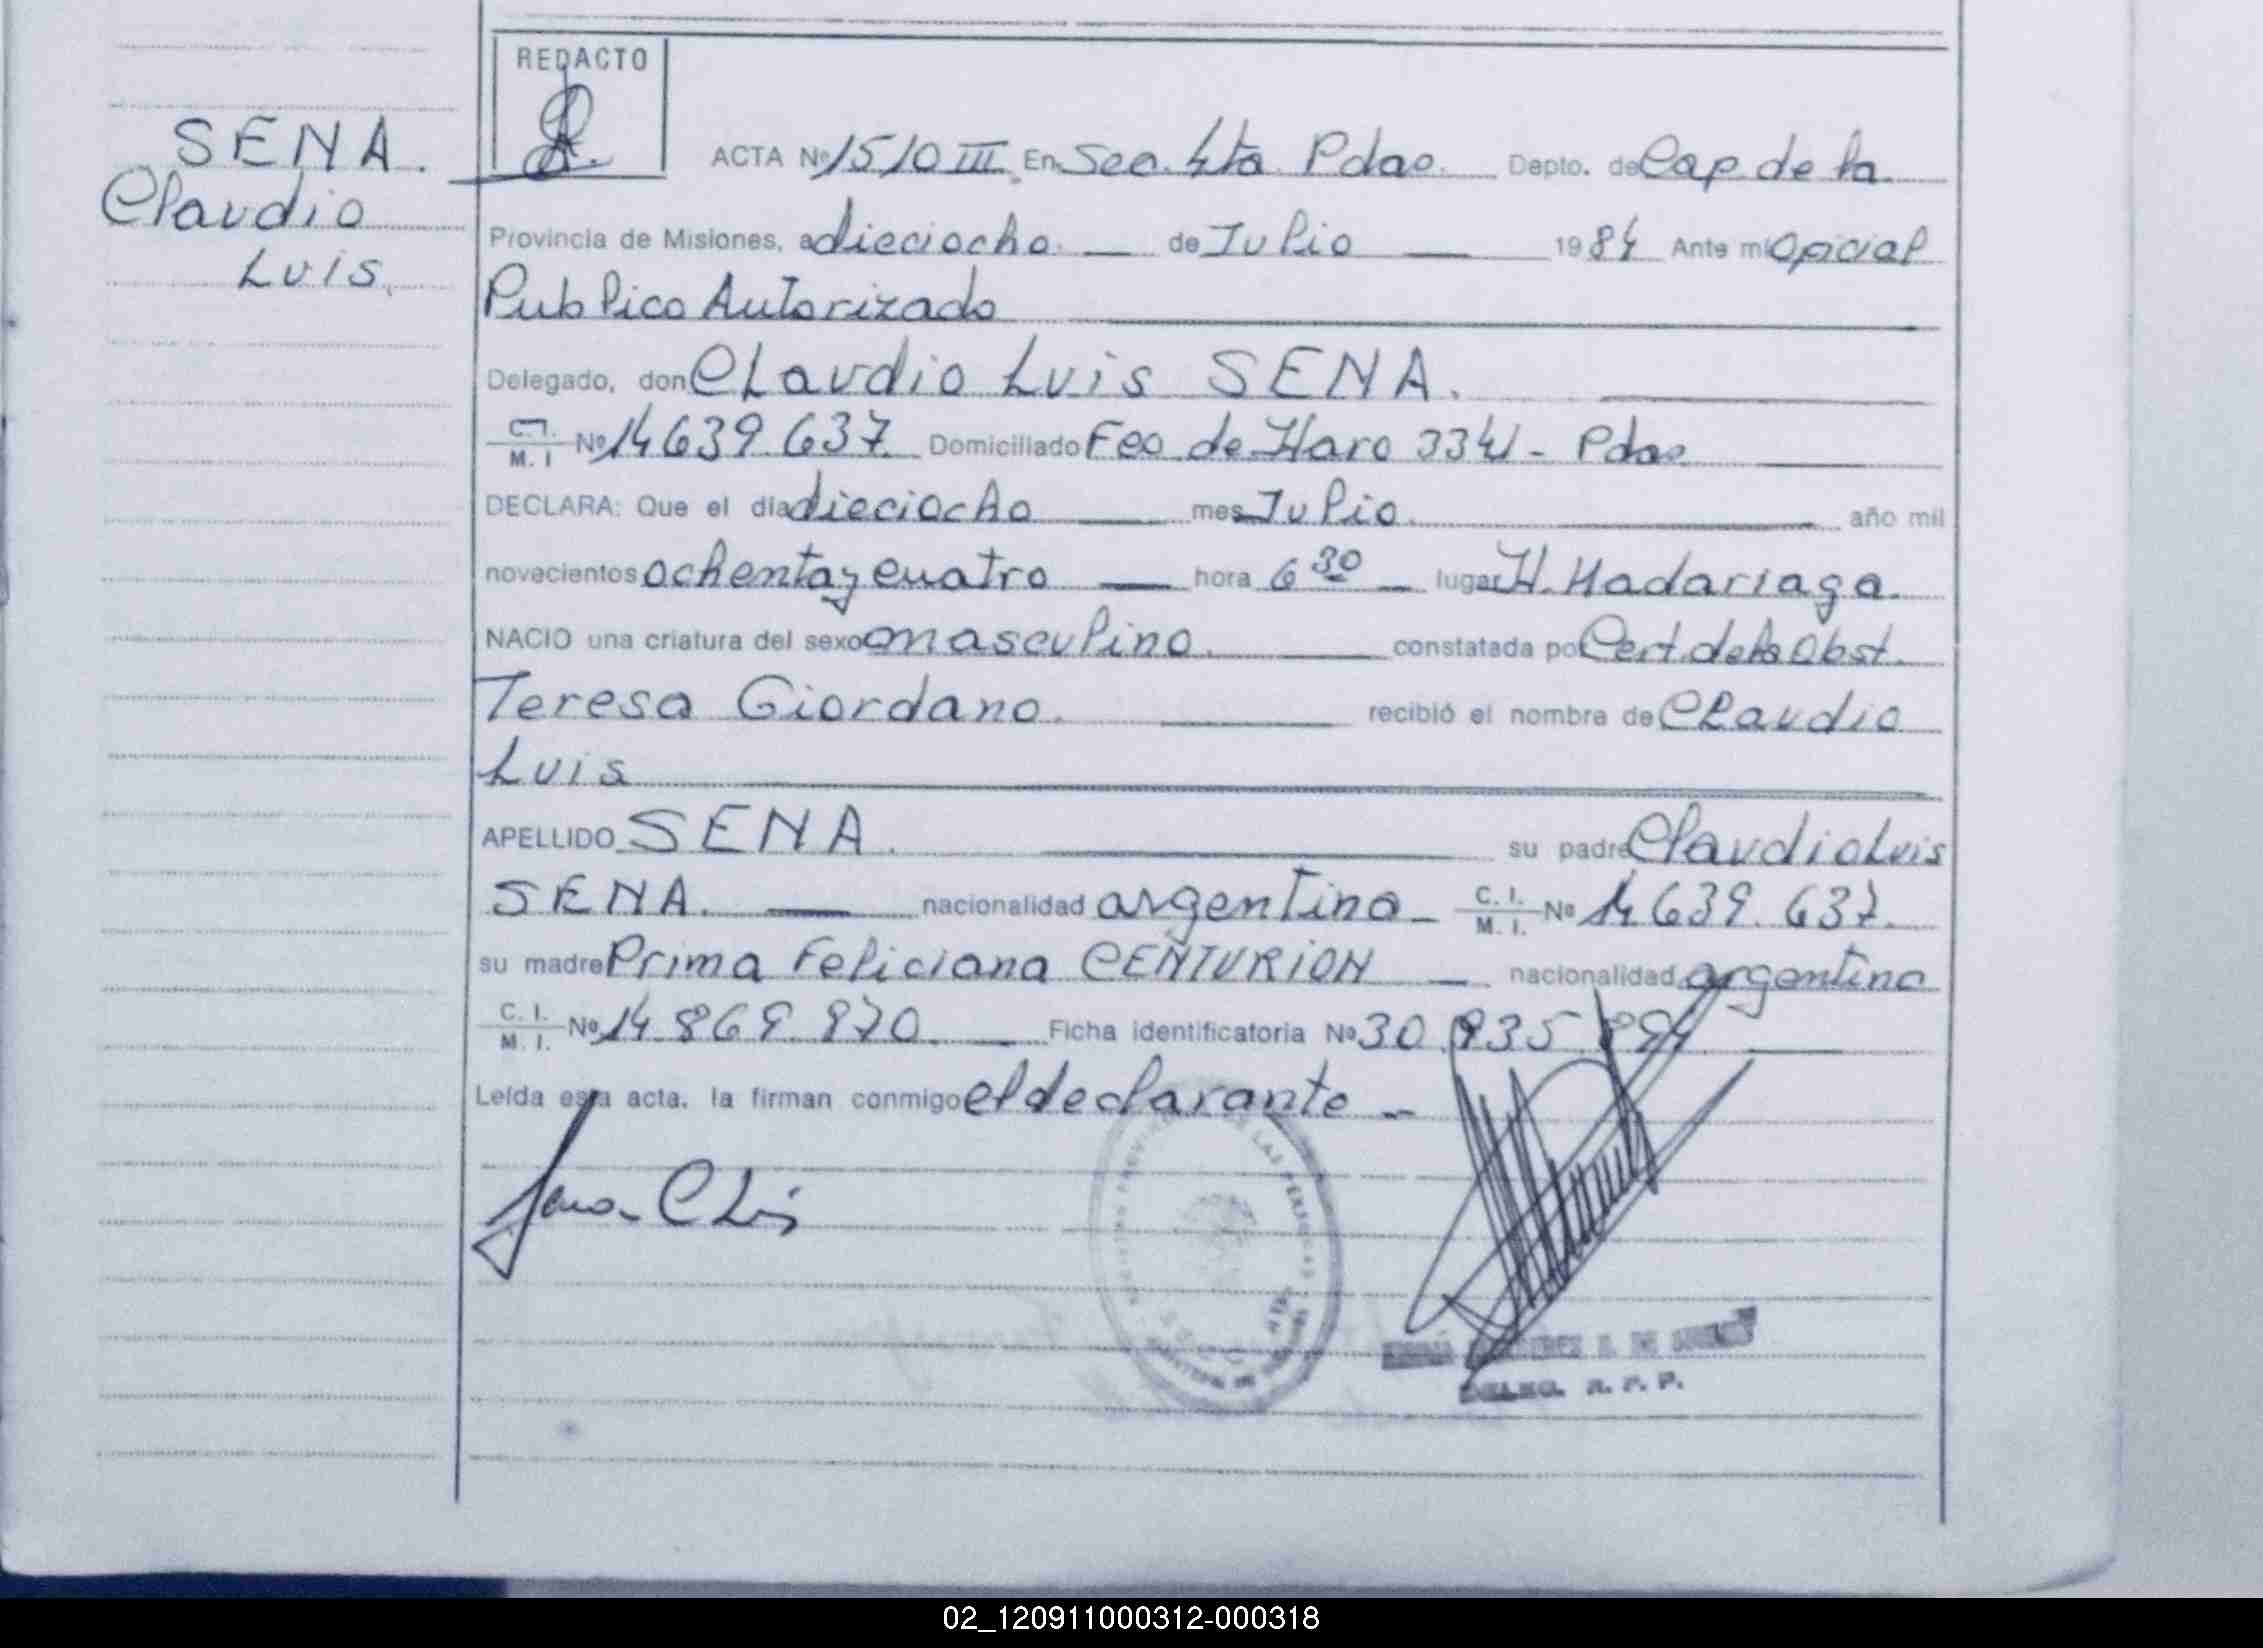 REDACTO
SENA.
Claudio
Luis.
ACTA Nº 1510 III En Sec. 4ta Pdas. Depto. de Cap. de la
Provincia de Misiones, a dieciocho de Julio 1984 Ante mi Oficial
Publico Autorizado
Delegado, don Claudio Luis SENA.
C.I. M. I Nº 14.639.637 Domiciliado Fco. de Haro 3341 - Pdas.
DECLARA: Que el día dieciocho mes Julio año mil
novecientos ochenta y cuatro hora 6 30 lugar H. Madariaga.
NACIO una criatura del sexo masculino. constatada por Cert. de la Obst.
Teresa Giordano. recibió el nombre de Claudio
Luis
APELLIDO SENA. su padre Claudio Luis
SENA. nacionalidad argentino C. I. M. I. Nº 14.639.637.
su madre Prima Feliciana CENTURION nacionalidad argentina
C. I. M. I. Nº 14.869.970. Ficha identificatoria Nº 30.935
Leída esta acta, la firman conmigo el declarante -
02_120911000312-000318